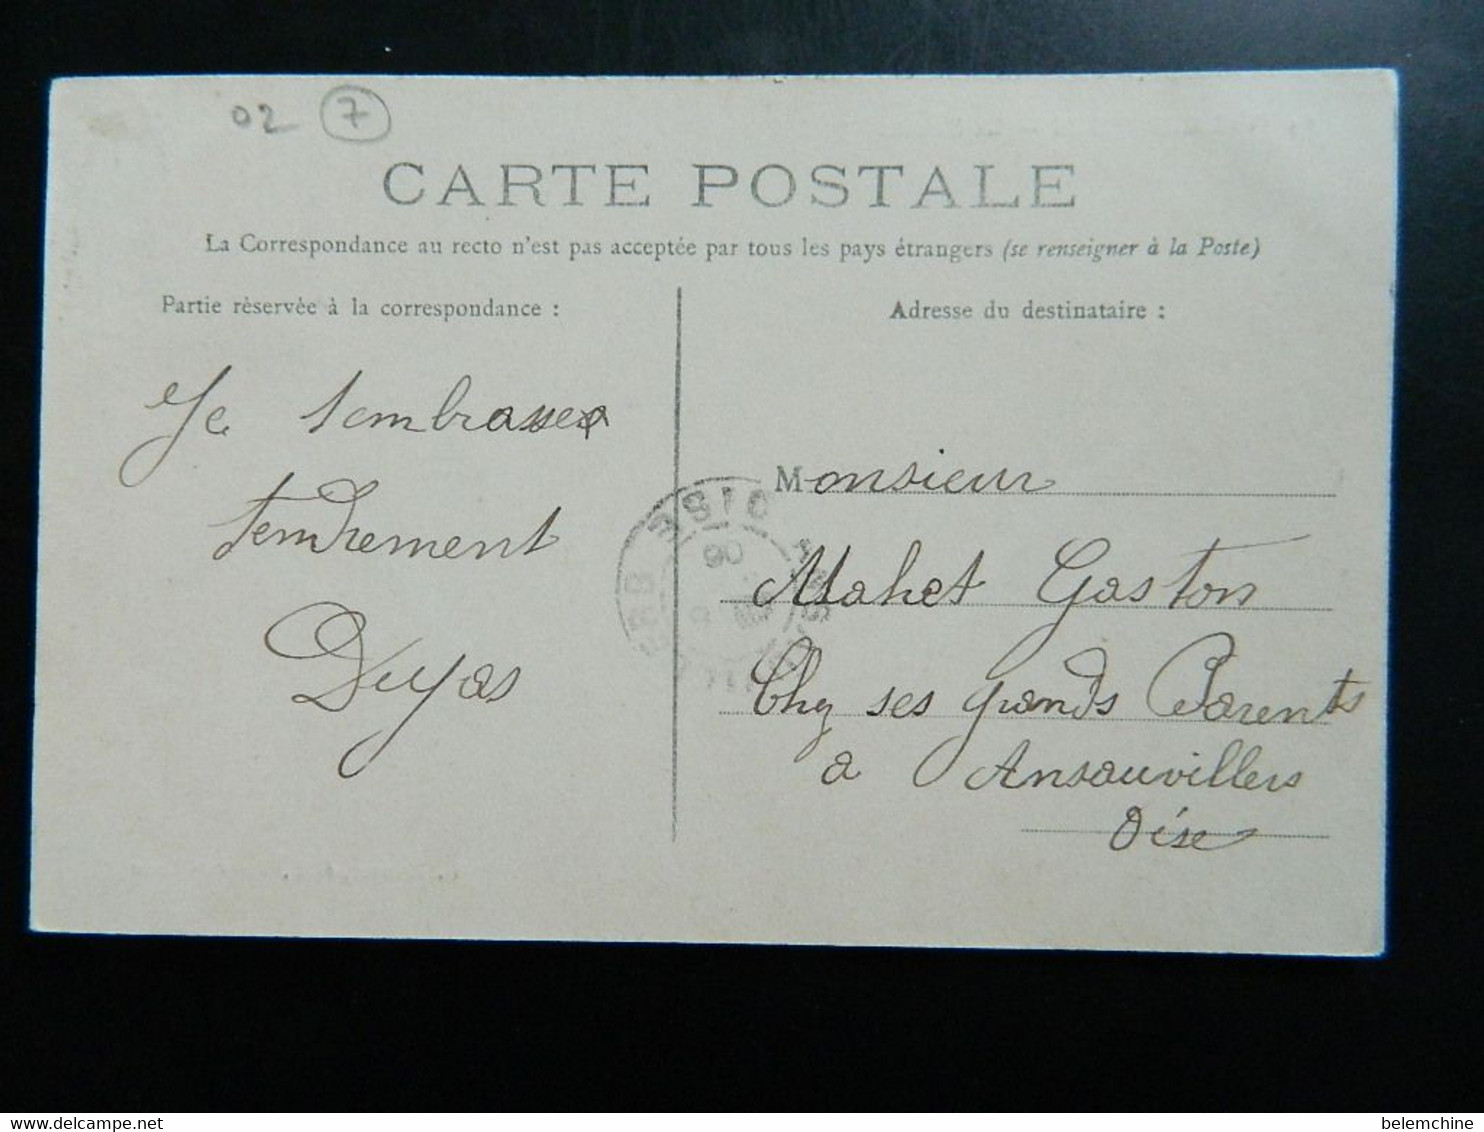 02 7
CARTE POSTALE
La Correspondance au recto n'est pas acceptée par tous les pays étrangers (se renseigner à la Poste)
Partie réservée à la correspondance :
Adresse du destinataire :
Je tembrasse
tendrement
Duyas
Monsieur
Mahet Gaston
Chez ses grands Parents
a Ansauvillers
Oise
OISE
06
www.delcampe.net
belemchine